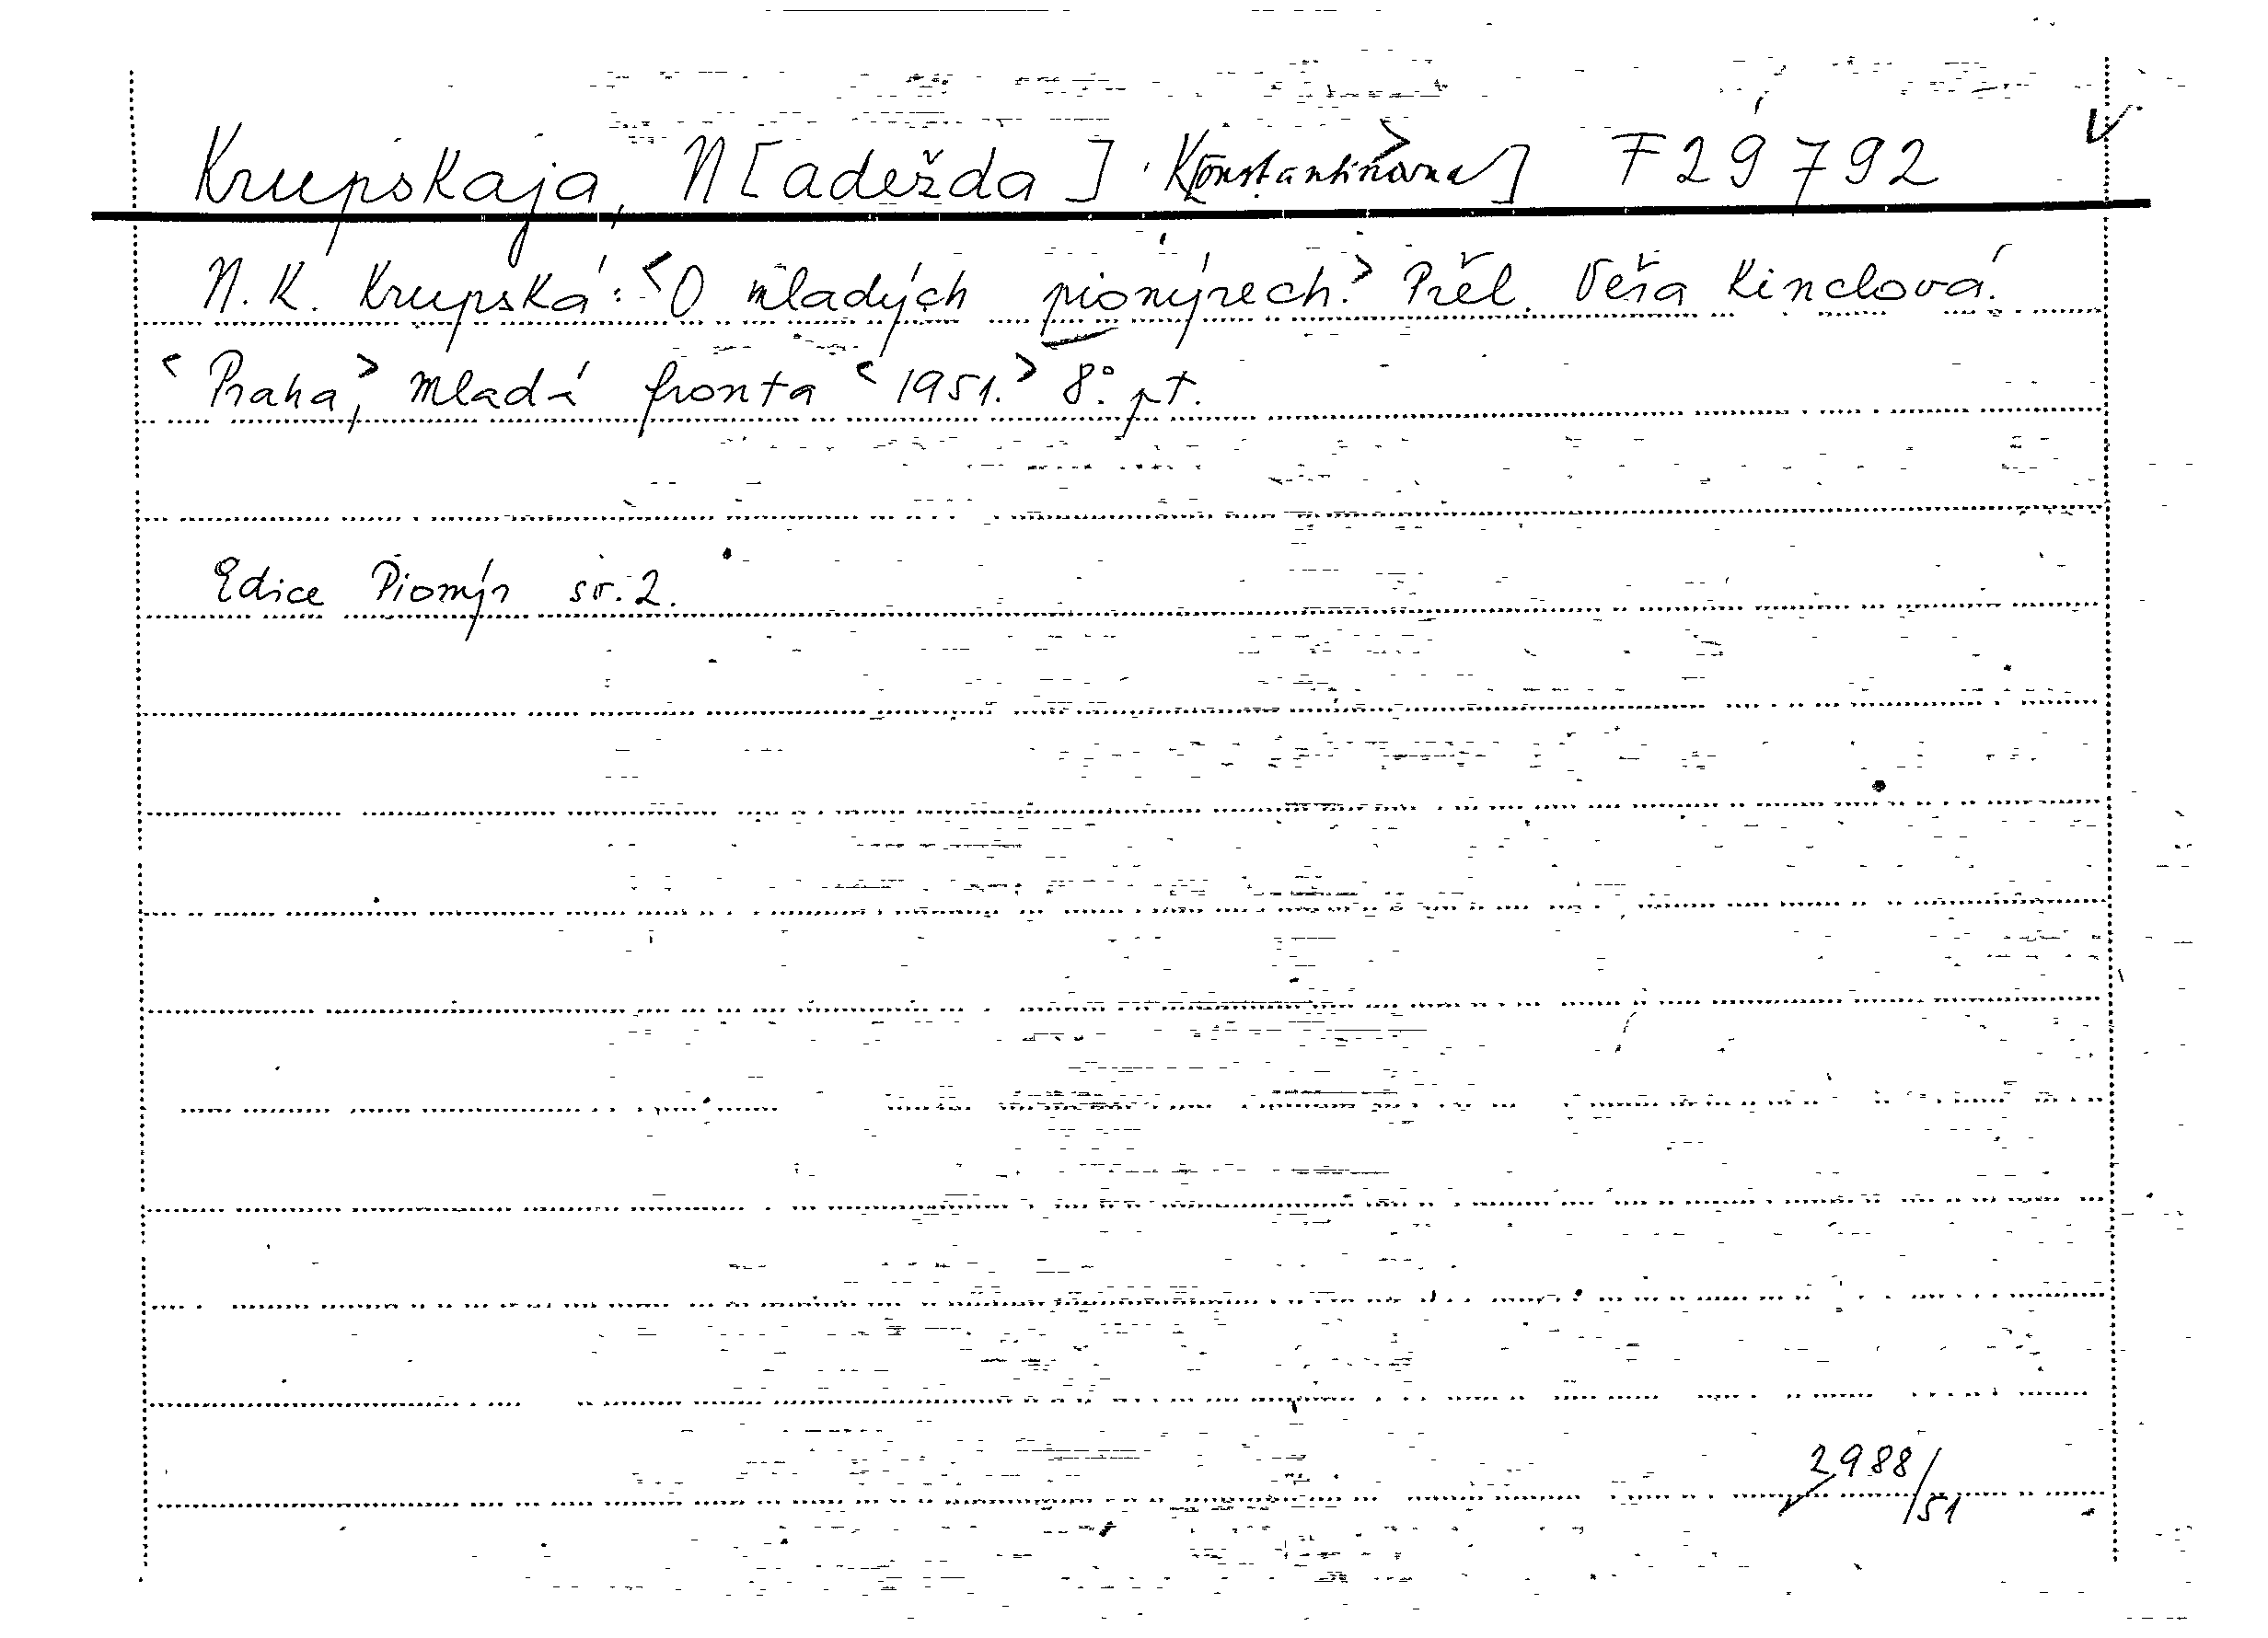 Krupskaja, N[adežda] K[onstantinovna] F 29792
N. K. Krupská: <O mladých pionýrech.> Přel. Věra Kinclová.
<Praha,> Mladá fronta <1951.> 8°. pt.
Edice Pionýr sv. 2.
2988/51